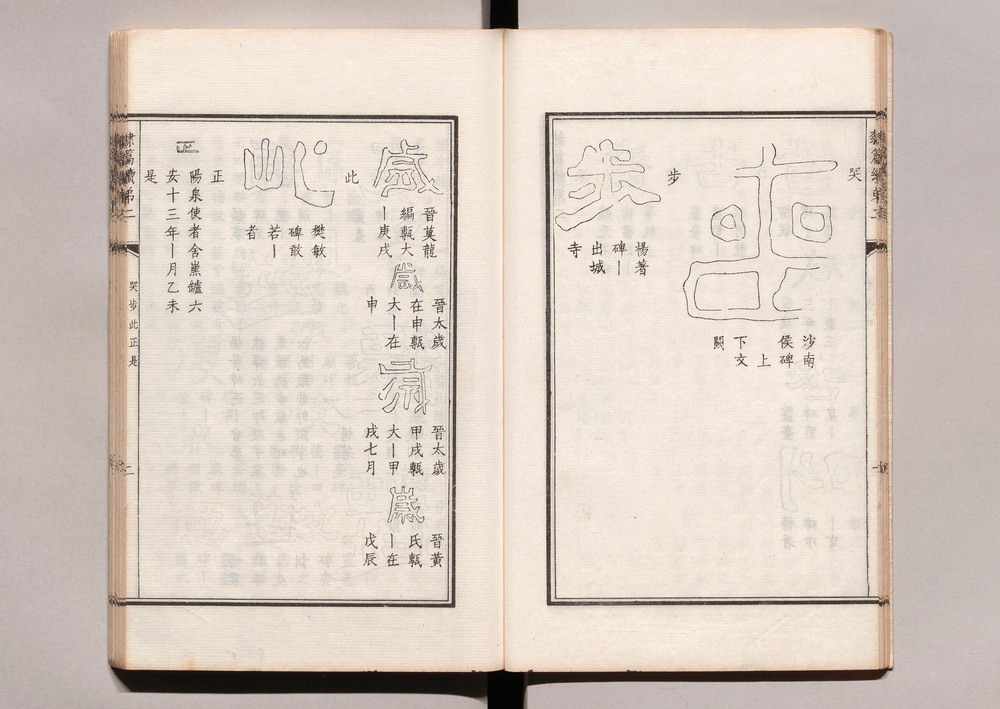 哭
沙南
侯碑
上
下文
闕
步
楊著
碑丨
出城
寺
歲
晉莫龍
編甎大
丨庚戌
歲
晉太歲
在申甎
大丨在
申
歲
晉太歲
甲戌甎
大丨甲
戌七月
歲
晉黃
氏甎
丨在
戊辰
此
此
樊敏
碑敢
若丨
者
正
正
陽泉使者舍熏鑪六
安十三年丨月乙未
是
隸篇續弟二
哭步此正是
二